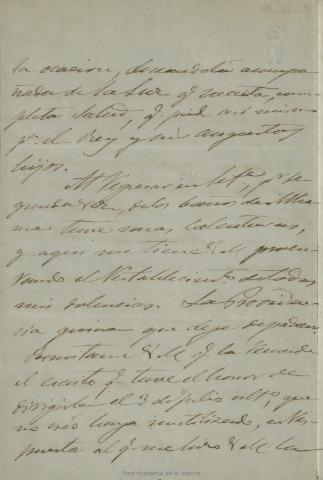 la ocasion, deseandola acompa-
ñada de la Luz q. necesita, com-
pleta salud, q. pido asi mismo
p.a el Rey y sus augustos
hijos.
Al regresar en Set.e, por se-
gunda vez, de los baños de Alha-
ma tuve unas calenturas,
y aqui me tiene V. M. procu-
rando el restablecim.to de todas
mis dolencias. La Providen-
cia quiera que deje de padecer.
Permitame V. M. q. la recuerde
el escrito q. tuve el honor de
dirigirla el 3 de Julio ult.o, que
no creo haya inutilizado, en res-
puesta al q. me hizo V. M. la
Real Academia de la Historia